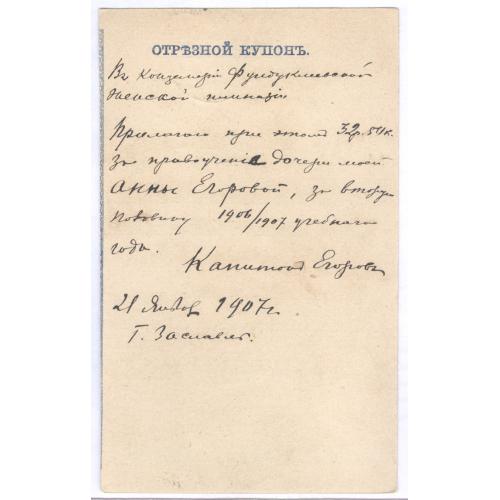 ОТРѢЗНОЙ КУПОНЪ.
Въ Канцелярію Фундуклеевской
женской гимназіи
Прилагаю при этомъ 32р. 54к.
за правоученіе дочери моей
Анны Егоровой, за вторую
половину 1906/1907 учебнаго
года.
Капитонъ Егоровъ
21 Января 1907г.
Г. Заславль.